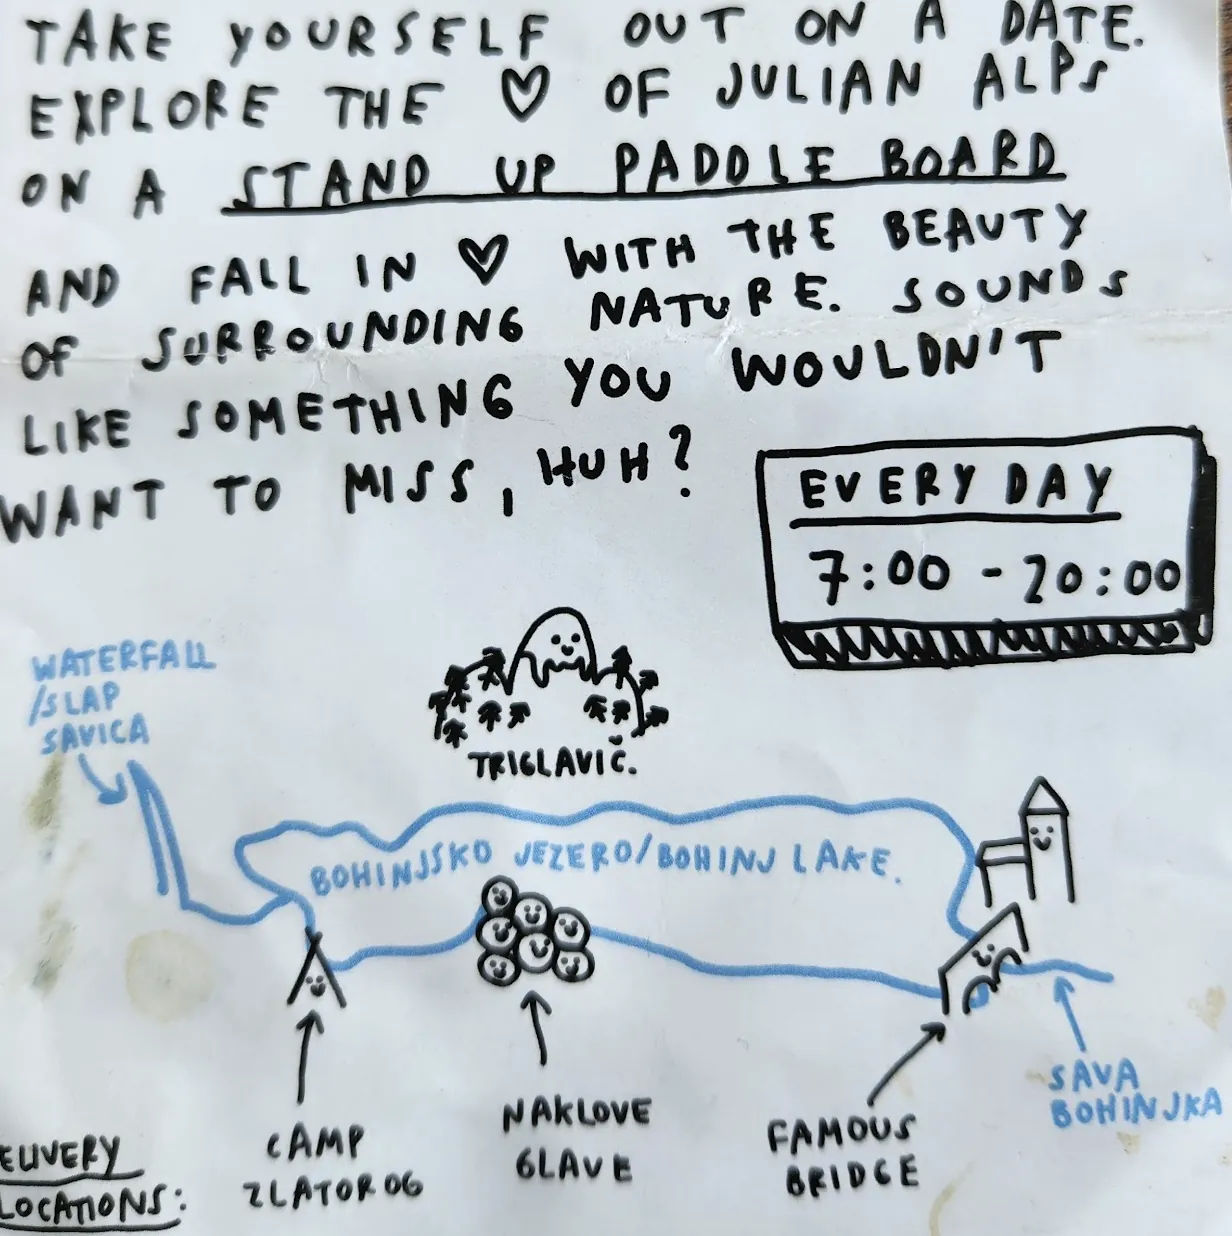 TAKE YOURSELF OUT ON A DATE.
EXPLORE THE ♡ OF JULIAN ALPS
ON A STAND UP PADDLE BOARD
AND FALL IN ♡ WITH THE BEAUTY
OF SURROUNDING NATURE. SOUNDS
LIKE SOMETHING YOU WOULDN'T
WANT TO MISS, HUH?
EVERY DAY
7:00 - 20:00
WATERFALL
/SLAP
SAVICA
TRIGLAVIČ.
BOHINJSKO JEZERO/BOHINJ LAKE.
SAVA
BOHINJKA
CAMP
ZLATOROG
NAKLOVE
GLAVE
FAMOUS
BRIDGE
ELIVERY
LOCATIONS: